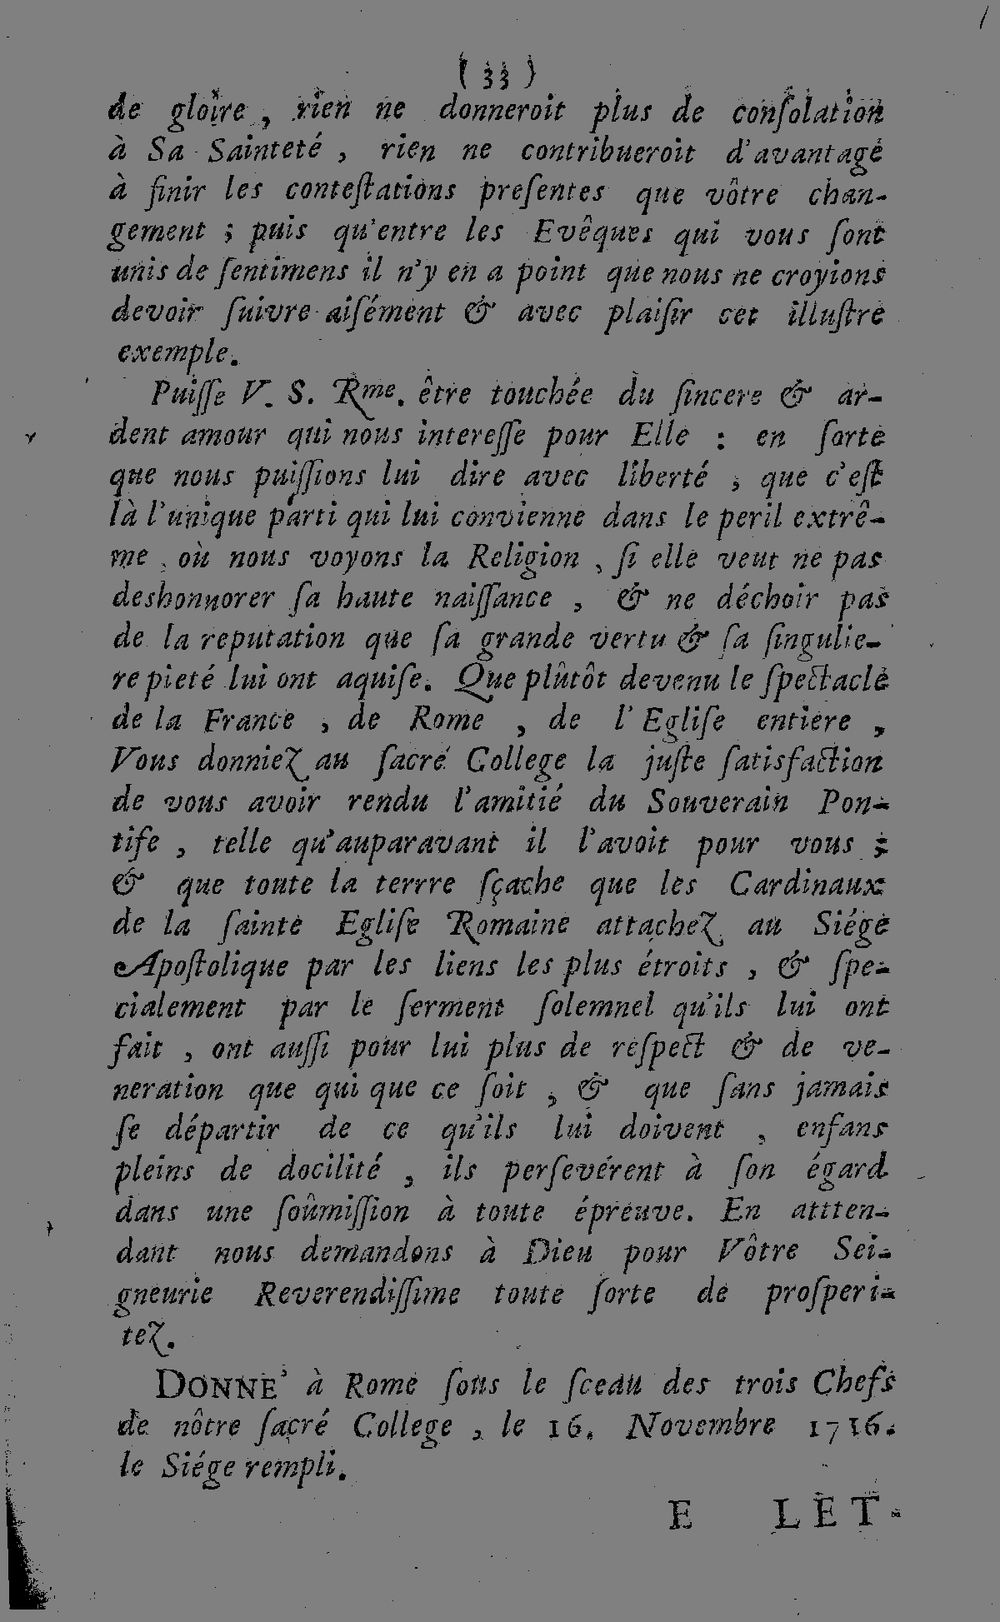 ( 33 )
de gloire, rien ne donneroit plus de conſolation
à Sa Sainteté, rien ne contribueroit d'avantage
à finir les conteſtations preſentes que vôtre chan-
gement ; puis qu'entre les Evêques qui vous ſont
unis de ſentimens il n'y en a point que nous ne croyions
devoir ſuivre aiſément & avec plaiſir cet illuſtre
exemple.
Puiſſe V. S. Rme. être touchée du ſincere & ar-
dent amour qui nous intereſſe pour Elle : en ſorte
que nous puiſſions lui dire avec liberté, que c'eſt
là l'unique parti qui lui convienne dans le peril extrê-
me, où nous voyons la Religion, ſi elle veut ne pas
deshonnorer ſa haute naiſſance, & ne déchoir pas
de la reputation que ſa grande vertu & ſa ſingulie-
re pieté lui ont aquiſe. Que plûtôt devenu le ſpectacle
de la France, de Rome, de l'Egliſe entiere,
Vous donniez au ſacré College la juſte ſatisfaction
de vous avoir rendu l'amitié du Souverain Pon-
tife, telle qu'auparavant il l'avoit pour vous ;
& que toute la terrre ſçache que les Cardinaux
de la ſainte Egliſe Romaine attachez au Siége
Apoſtolique par les liens les plus étroits, & ſpe-
cialement par le ſerment ſolemnel qu'ils lui ont
fait, ont auſſi pour lui plus de reſpect & de ve-
neration que qui que ce ſoit, & que ſans jamais
ſe départir de ce qu'ils lui doivent, enfans
pleins de docilité, ils perſevérent à ſon égard
dans une ſoûmiſſion à toute épreuve. En attten-
dant nous demandons à Dieu pour Vôtre Sei-
gneurie Reverendiſſime toute ſorte de proſperi-
tez.
DONNE' à Rome ſous le ſceau des trois Chefs
de nôtre ſacré College, le 16. Novembre 1716.
le Siége rempli.
E LET-